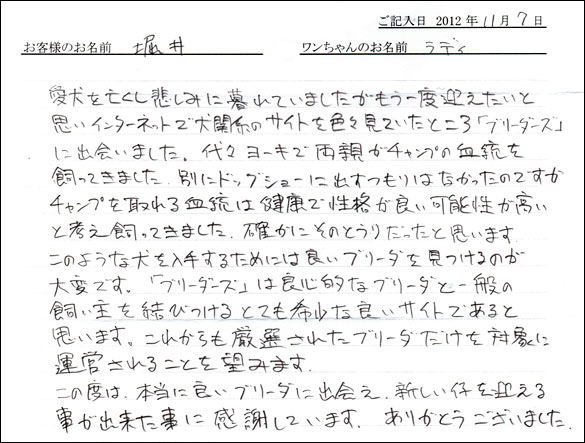 ご記入日 2012年11月7日
お客様のお名前 堀井 ワンちゃんのお名前 ラディ
愛犬を亡くし悲しみに暮れていましたがもう一度迎えたいと
思いインターネットで犬関係のサイトを色々見ていたところ「ブリーダーズ」
に出会いました。代々ヨーキで両親がチャンプの血統を
飼ってきました。別にドッグショーに出すつもりはなかったのですが
チャンプを取れる血統は健康で性格が良い可能性が高い
と考え飼ってきました。確かにそのとうりだったと思います。
このような犬を入手するためには良いブリーダを見つけるのが
大変です。「ブリーダーズ」は良心的なブリーダと一般の
飼い主を結びつけるとても希少な良いサイトであると
思います。これからも厳選されたブリーダだけを対象に
運営されることを望みます。
この度は、本当に良いブリーダに出会え、新しい仔を迎える
事が出来た事に感謝しています。ありがとうございました。